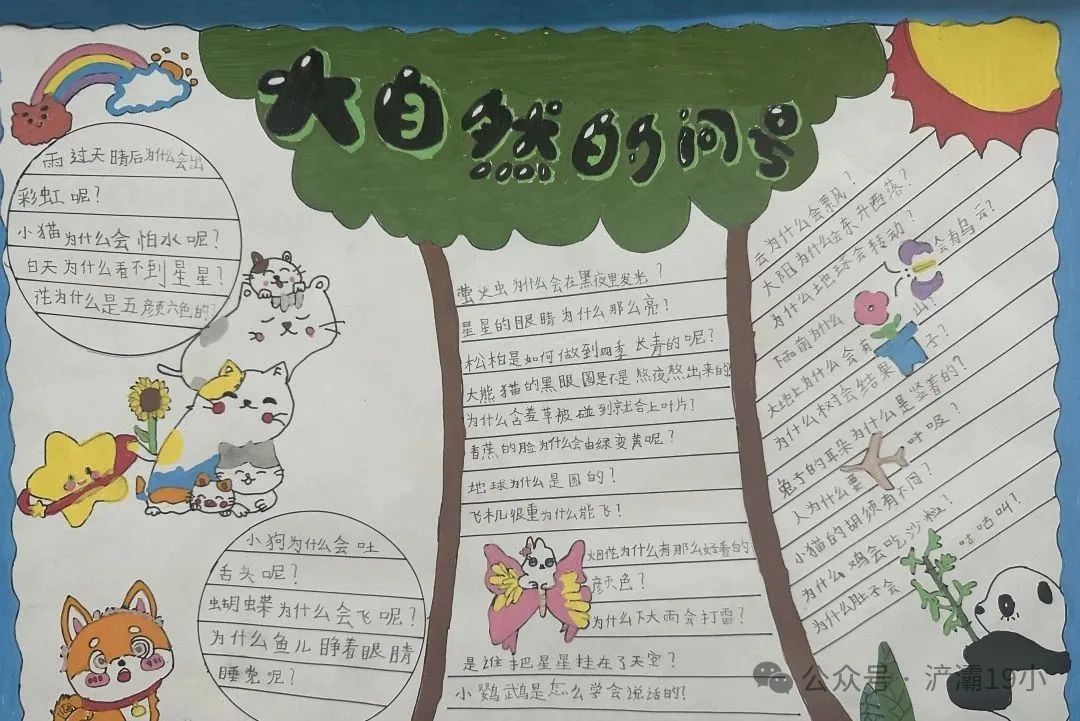 大自然的问号
雨过天晴后为什么会出
彩虹呢?
小猫为什么会怕水呢?
白天为什么看不到星星?
花为什么是五颜六色的?
小狗为什么会吐
舌头呢?
蝴蝶为什么会飞呢?
为什么鱼儿睁着眼睛
睡觉呢?
萤火虫为什么会在黑夜里发光?
星星的眼睛为什么那么亮?
松柏是如何做到四季长青的呢?
大熊猫的黑眼圈是不是熬夜熬出来的
为什么含羞草被碰到就合上叶片?
香蕉的脸为什么会由绿变黄呢?
地球为什么是圆的?
飞机很重为什么能飞?
烟花为什么有那么好看的
颜色?
为什么下大雨会打雷?
是谁把星星挂在了天空?
小鹦鹉是怎么学会说话的?
云为什么会飘风?
太阳为什么会东升西落?
为什么地球会转动?
下雨前为什么会有乌云?
大地上为什么会有出?
为什么树会结果子?
兔子的耳朵为什么是竖着的?
人为什么要呼吸?
小猫的胡须有不同?
为什么鸡会吃沙粒?
为什么肚子会咕咕叫?
公众号·浐灞19小